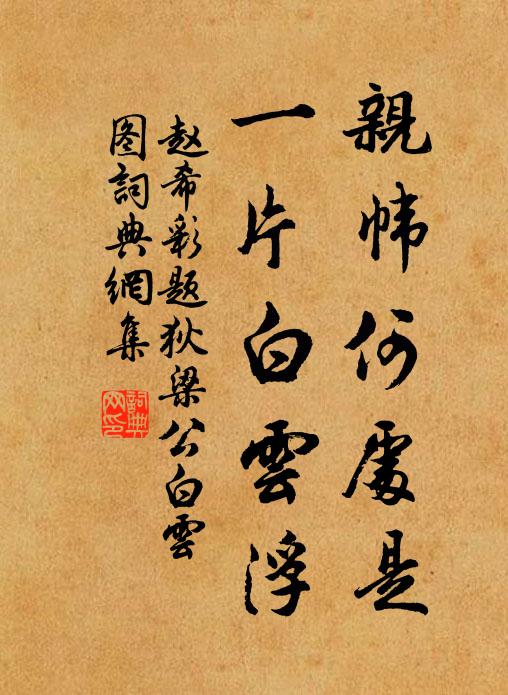 親帏何處是
一片白雲浮
赵希彰题狄梁公白雲
图詞典網集
詞典
网印